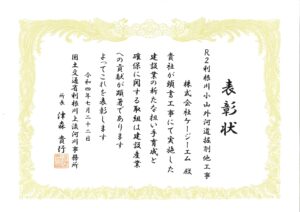 表彰状
R2利根川小山外河道掘削他工事
株式会社ケージーエム 殿
貴社が頭書工事にて実施した
建設業の新たな担い手育成と
確保に関する取組は建設産業
への貢献が顕著であります
よってこれを表彰します
令和四年七月二十二日
国土交通省利根川上流河川事務所
所長 津森貴行